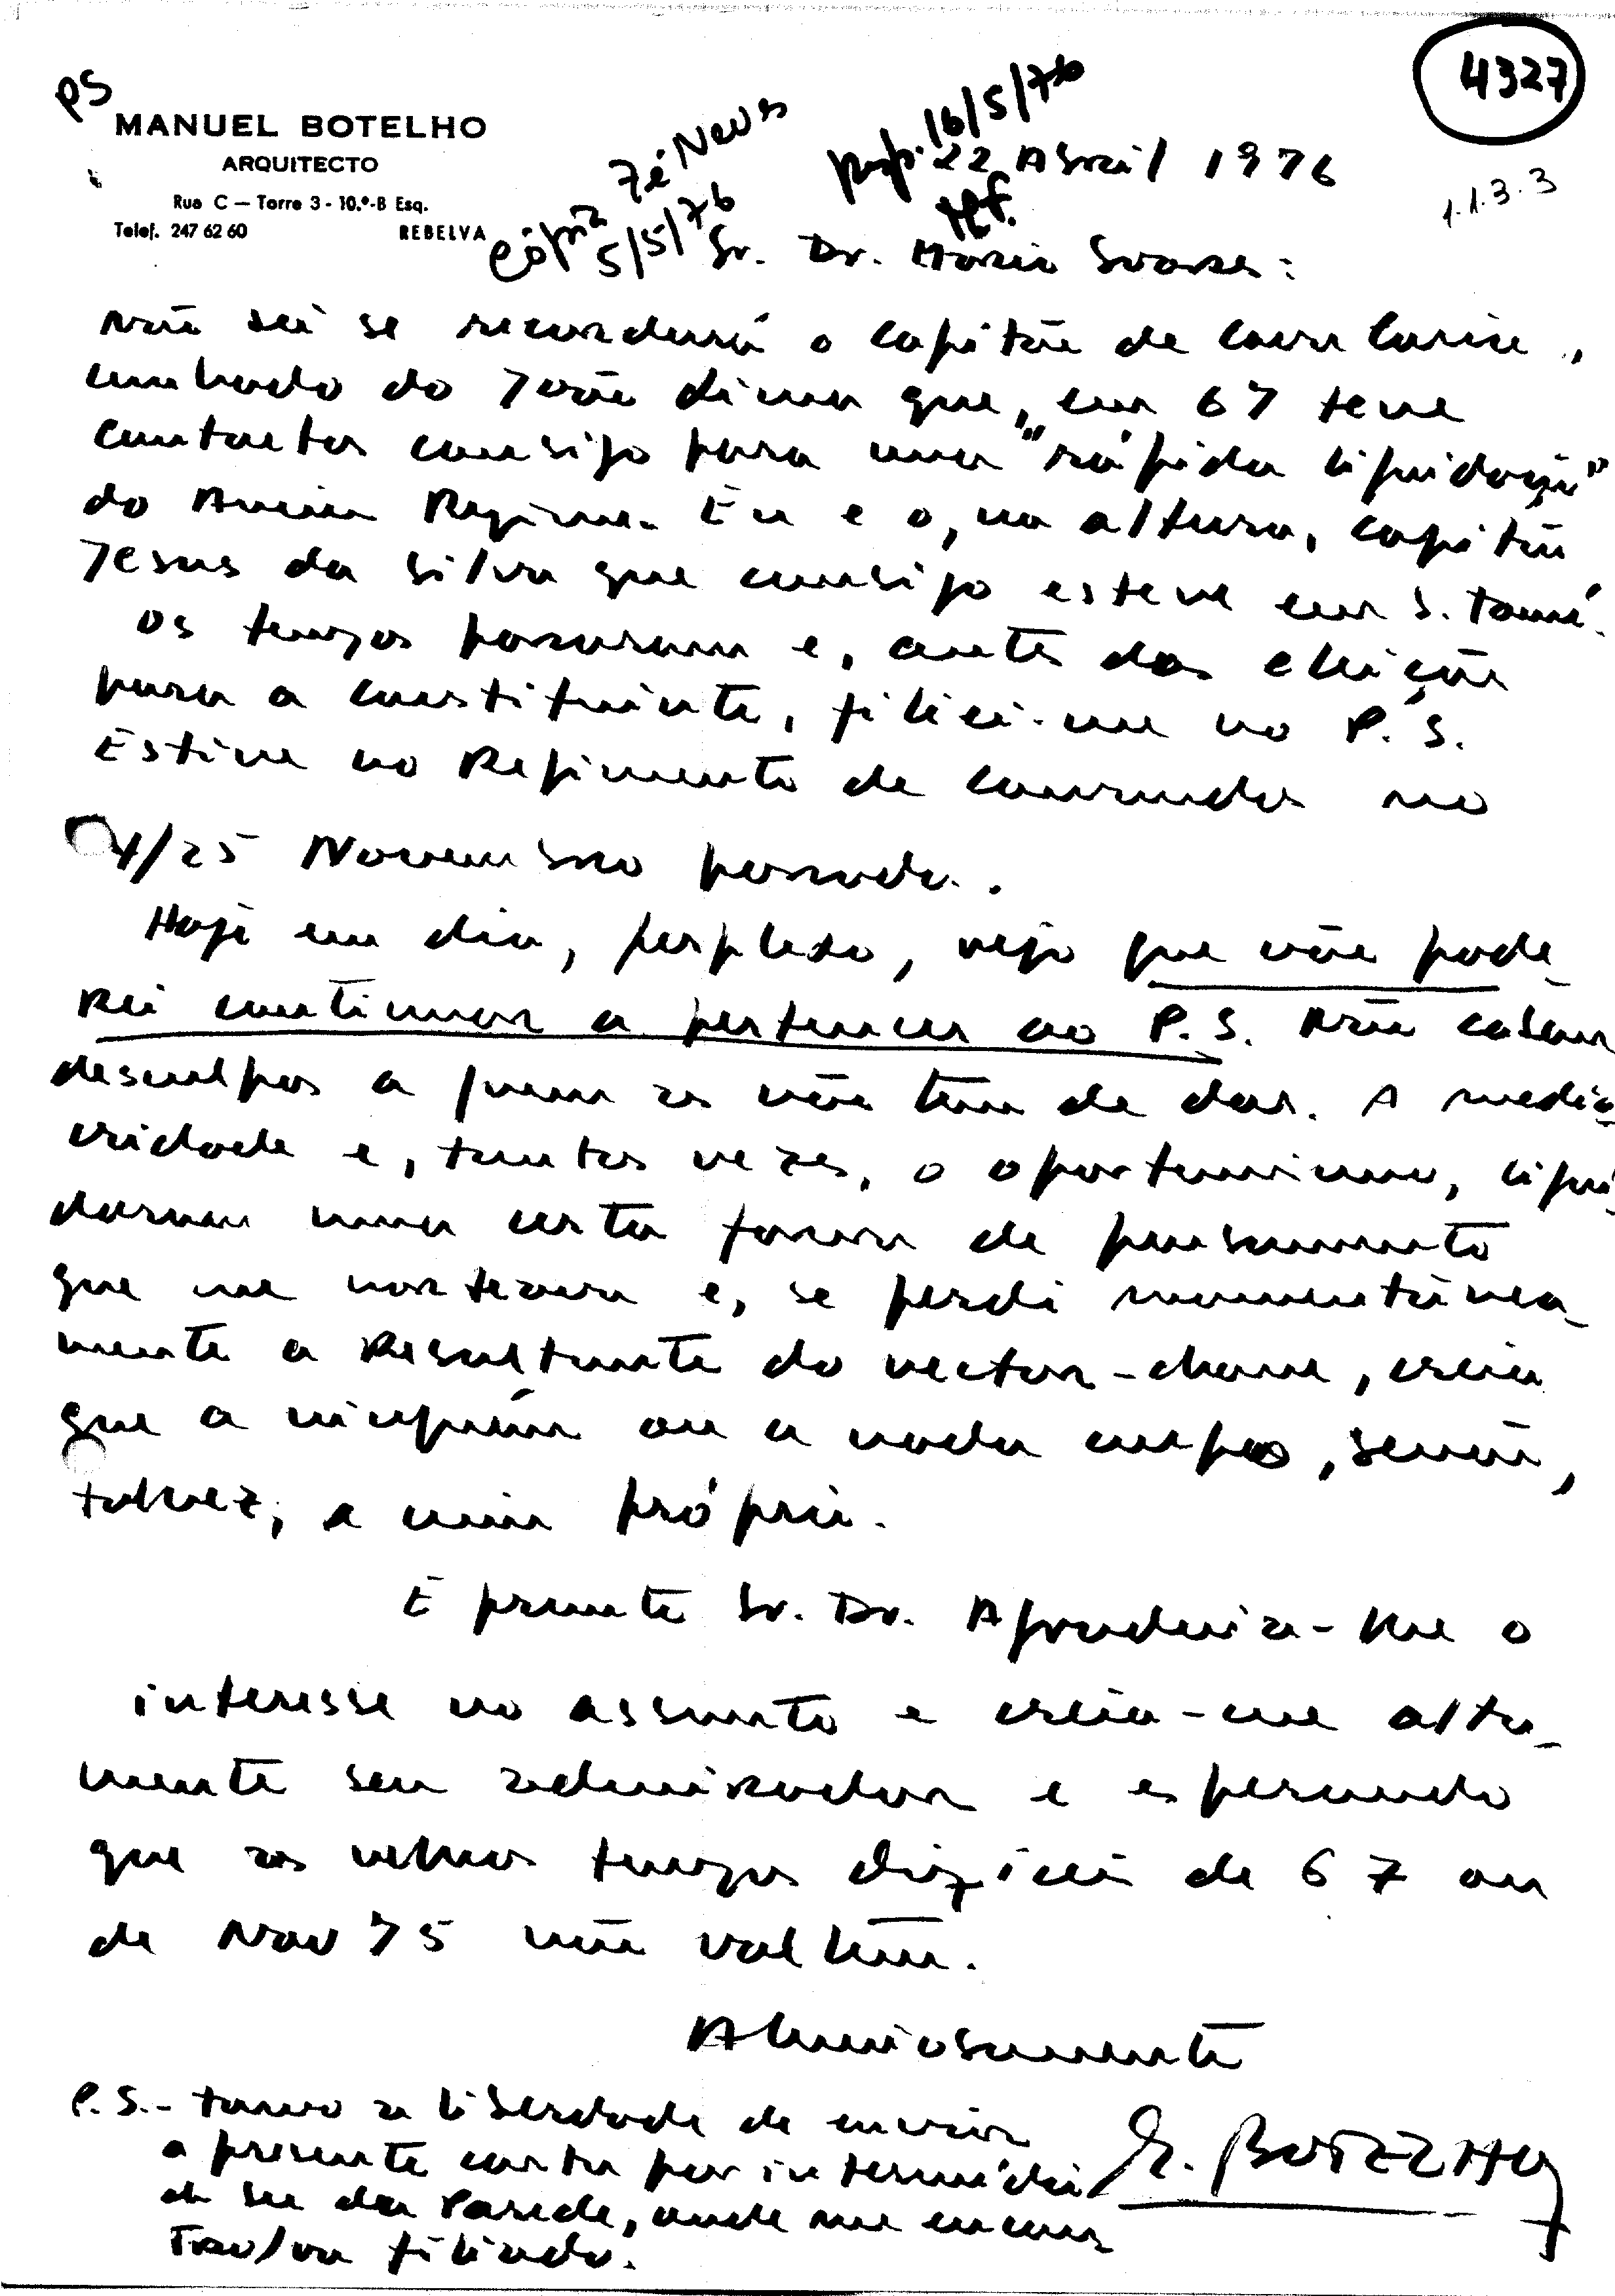 PS
4327
MANUEL BOTELHO
ARQUITECTO
Rua C — Torre 3 - 10.º-B Esq.
Telef. 247 62 60 REBELVA
cópia Zé Neves
5/5/76
16/5/76
22 Abril 1976
1.1.3.3
Sr. Dr. Mario Soares:
Não sei se recordará o capitão de cavalaria,
cunhado do João Lima que, em 67 teve
contactos consigo para uma "rápida liquidação"
do Antigo Regime. Eu e o, na altura, capitão
Jesus da Silva que consigo esteve em S. Tomé.
Os tempos passaram e, antes das eleições
para a constituinte, filiei-me no P.S.
Estive no Regimento de Comandos no
24/25 Novembro passado.
Hoje em dia, perplexo, vejo que não pode-
rei continuar a pertencer ao P.S. Não cabem
desculpas a quem as não tem de dar. A medio-
cridade e, tantas vezes, o oportunismo, liqui-
daram uma certa forma de pensamento
que me norteava e, se perdi momentânea-
mente a resultante do vector-chave, creia
que a ninguém ou a nada culpo, senão,
talvez, a mim próprio.
É premente Sr. Dr. Agradecia-lhe o
interesse no assunto e creia-me alta-
mente seu admirador e esperando
que os velhos tempos difíceis de 67 ou
de Nov 75 não voltem.
Atenciosamente
P.S. - tomo a liberdade de enviar
a presente carta por intermédio
da sec da Parede, onde me encon-
trava filiado.
M. Botelho